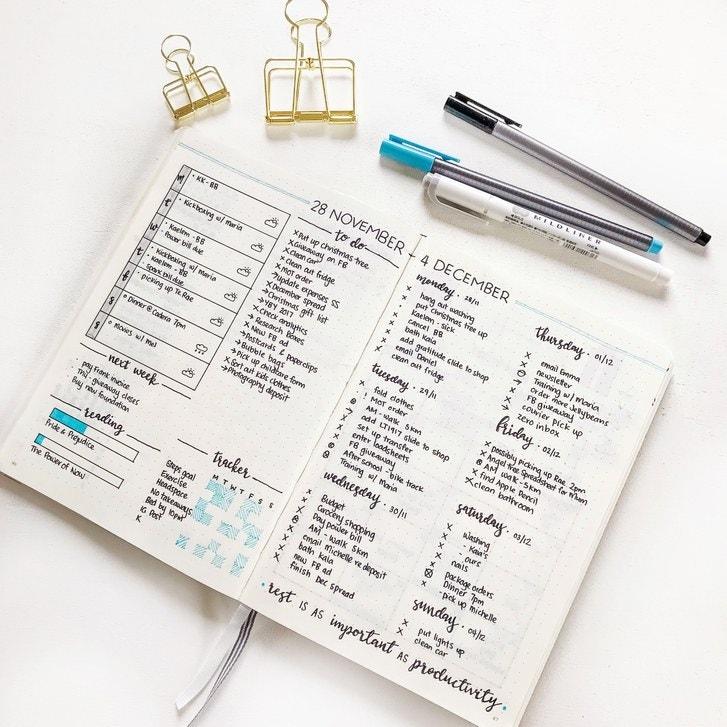 28 NOVEMBER
m
KK - BB
t
Kickboxing w/ maria
w
Kaelem - BB
Power bill due
t
Kickboxing w/ maria
Kaelem - BB
Spark bill due
f
picking up Te Rae
s
Dinner @ Cadera 7pm
s
Movies w/ Mel
next week
pay Frank invoice
TMJ giveaway closes
Buy new foundation
reading
Pride & Prejudice
The Power of Now
to do
x Put up Christmas tree
x Giveaway on FB
x Clean car
x Clean out fridge
x MOT order
→ Update expenses SS
x December spread
→ Christmas gift list
→ YBY 2017
x Check analytics
→ Research Boxes
x New FB ad
→ Postcards & paperclips
→ Bubble bags
x Pick up childcare form
→ Sort out kids clothes
→ Photography deposit
tracker
M T W T F S S
Steps goal
Exercise
Headspace
No takeaways
Bed by 10pm
IG Post
K
4 DECEMBER
monday · 28/11
x hang out washing
x put christmas tree up
x Kaelem - sick
x cancel BB
x bath Kaia
x add gratitude slide to shop
x email Daniel
x clean out fridge
tuesday · 29/11
x fold clothes
! MOT order
AM - walk 5km
add LT1417 slide to shop
x set up transfer
x enter loadsheets
x FB giveaway
After school - bike track
Training w/ Maria
wednesday · 30/11
x Budget
x Grocery shopping
x Pay power bill
AM - walk 5km
x email Michelle re deposit
x bath kaia
x new FB ad
finish Dec spread
thursday · 01/12
x email Emma
x newsletter
Training w/ maria
→ Order more Jellybeans
x FB giveaway
x courier pick up
→ zero inbox
friday · 02/12
x possibly picking up Rae 2pm
x Angel Tree Spreadsheet for Mum
AM Walk - 5km
x find Apple Pencil
x clean bathroom
saturday · 03/12
x Washing
x - Kaia's
x - ours
x nails
x package orders
Dinner 7pm
- pick up michelle
sunday · 04/12
x put lights up
x clean car
· rest IS AS important AS productivity ·
MILDLINER